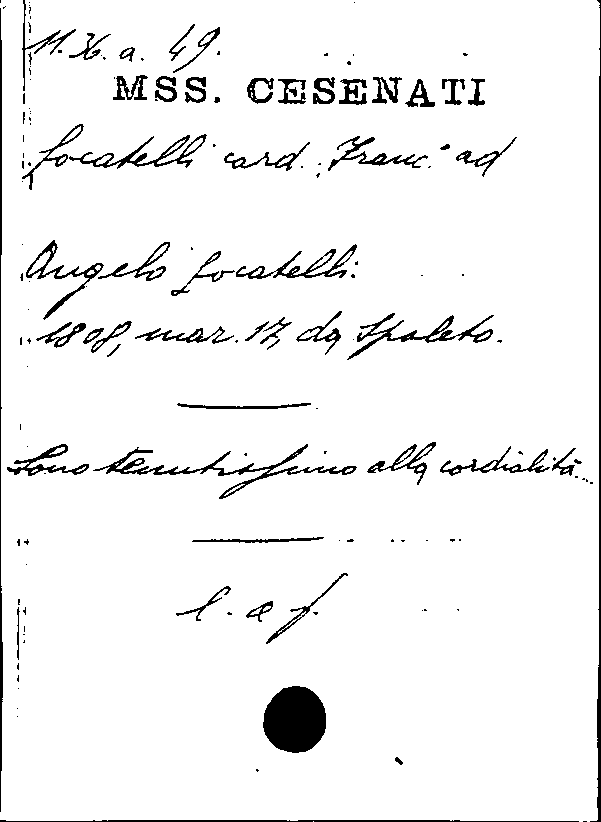 11. 36. a. 49.
MSS. CESENATI
Locatelli card. Franc.° ad
Angelo Locatelli.
1808, mar. 17, da Spoleto.
Sono tenutissimo alla cordialità...
l. a f.